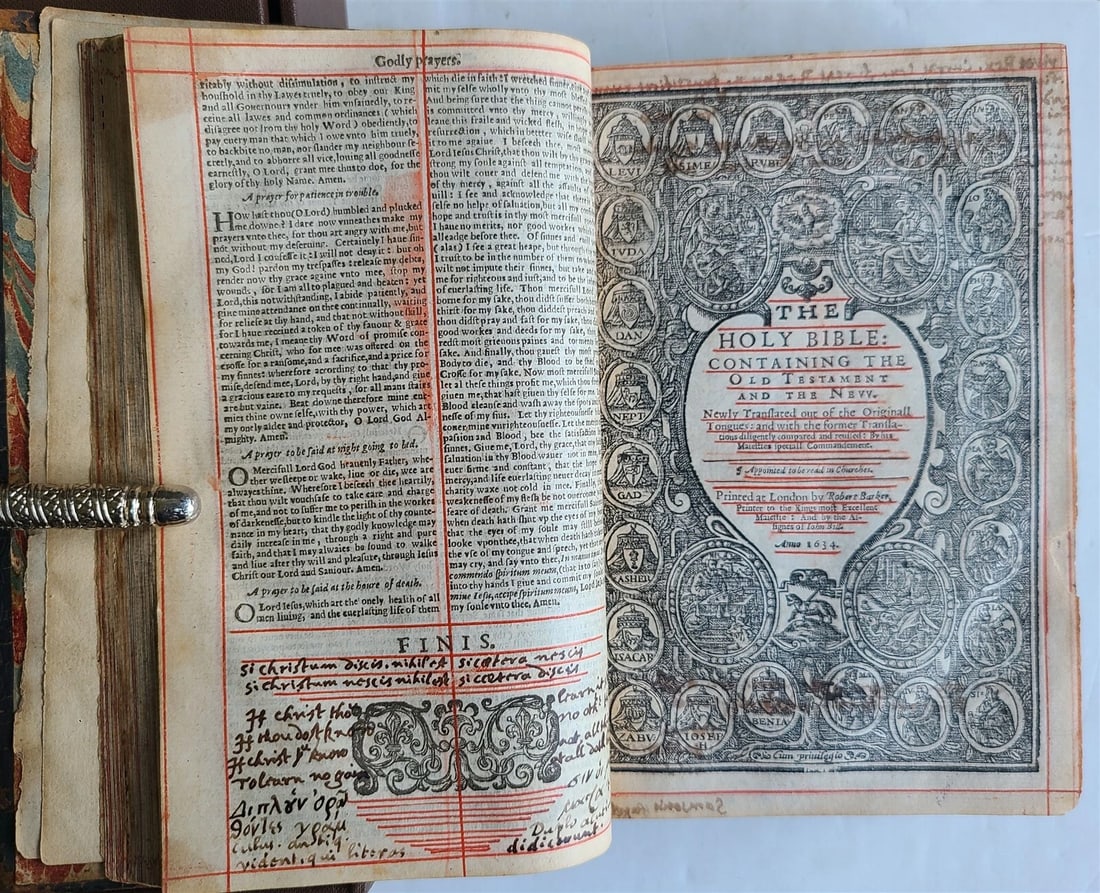 Godly prayers.
ritably without dissimulation, to instruct my
houshold in thy Lawes truely, to obey our King
and all Gouernours vnder him vnfainedly, to re-
ceiue all lawes and common ordinances (which
disagree not from thy holy Word) obediently, to
pay euery man that which I owe vnto him truely,
to backbite no man, nor slander my neighbour se-
cretly, and to abhorre all vice, louing all goodnesse
earnestly, O Lord, grant me thus to doe, for the
glory of thy holy Name. Amen.
A prayer for patience in trouble.
HOw hast thou (O Lord) humbled and plucked
me downe? I dare now vnneathes make my
prayers vnto thee, for thou art angry with me, but
not without my deseruing. Certainely I haue sin-
ned, Lord I confesse it: I will not deny it: but oh
my God! pardon my trespasses: release my debts,
render now thy grace againe vnto mee, stop my
wounds, for I am all to plagued and beaten: yet
Lord, this notwithstanding, I abide patiently, and
giue mine attendance on thee continually, waiting
for reliefe at thy hand, and that not without skill,
for I haue receiued a token of thy fauour & grace
towards me, I meane thy Word of promise con-
cerning Christ, who for me was offered on the
crosse for a ransome, and a sacrifice, and a price for
my sinnes: wherefore according to that thy pro-
mise, defend mee, Lord, by thy right hand, and giue
a gracious eare to my requests, for all mans staies
are but vaine. Beat downe therefore mine ene-
mies thine owne selfe, with thy power, which art
my onely aider and protector, O Lord God Al-
mighty. Amen.
A prayer to be said at night going to bed.
O Mercifull Lord God heauenly Father, whe-
ther we sleepe or wake, liue or die, wee are
alwayes thine. Wherefore I beseech thee heartily,
that thou wilt vouchsafe to take care and charge
of me, and not to suffer me to perish in the workes
of darkenesse, but to kindle the light of thy counte-
nance in my heart, that thy godly knowledge may
daily increase in me, through a right and pure
faith, and that I may alwaies be found to walke
and liue after thy will and pleasure, through Iesus
Christ our Lord and Sauiour. Amen.
A prayer to be said at the houre of death.
O Lord Iesus, which art the onely health of all
men liuing, and the euerlasting life of them
which die in faith: I wretched sinner
mit my selfe wholly vnto thy most
And being sure that the thing cannot
is committed vnto thy mercy, willing
leaue this fraile and wicked flesh, in
resurrection, which in better
it to me againe. I beseech thee, most
Lord Iesus Christ, that thou wilt by thy
strong my soule against all temptation
thou wilt couer and defend me with
of thy mercy, against all the assaults
uill: I see and acknowledge that there
selfe no helpe of saluation, but all my
hope and trust is in thy most mercifull
I haue no merits, nor good workes which
alleadge before thee. Of sinnes and
(alas) I see a great heape, but through
I trust to be in the number of them to
wilt not impute their sinnes, but take
me for righteous and iust, and to be the
of euerlasting life. Thou mercifull
borne for my sake, thou didst suffer both
thirst for my sake, thou diddest preach
thou didst pray and fast for my sake, thou
good workes and deeds for my sake, thou
redst most grieuous paines and torments
sake. And finally, thou gauest thy most
Body to die, and thy Blood to be shed
Crosse for my sake. Now most mercifull
let all these things profit me, which thou
giuen me, that hast giuen thy selfe for me
Blood cleanse and wash away the spots
nesse of my sins. Let thy righteousnesse
couer mine vnrighteousnesse. Let the
passion and Blood, bee the satisfaction
sinnes. Giue me, Lord, thy grace, that
saluation in thy Blood wauer not in me
euer firme and constant, that the hope
mercy, and life euerlasting neuer decay
charity waxe not cold in me. Finally
weakenesse of my flesh be not ouercome
feare of death. Grant me mercifull
when death hath shut vp the eyes of
that the eyes of my soule may still
looke vpon thee, that when death hath
the vse of my tongue and speech, yet
may cry, and say vnto thee, In manus
commendo spiritum meum, (that is to
into thy hands I giue and commit my
mine Iesu, accipe spiritum meum, Lord
my soule vnto thee, Amen.
FINIS.
si christum discis. nihil est si cætera nescis
si christum nescis nihil est si cætera discis
If christ thou
If thou dost know
If christ yu know
To learn no
learn
no oth
not all
Διπλοῦν ὁρῶ
vident. qui literas
Duplo
didicerunt
LEVI
SIME
RVBE
IVDA
DAN
NEPT
GAD
ASHER
ISACAR
ZABV
IOSEPH
BENIA
THE
HOLY BIBLE:
CONTAINING THE
OLD TESTAMENT
AND THE NEVV.
Newly Translated out of the Originall
Tongues: and with the former Transla-
tions diligently compared and reuised: By his
Maiesties speciall Commandement.
¶ Appointed to be read in Churches.
Printed at London by Robert Barker,
Printer to the Kings most Excellent
Maiestie: And by the As-
signes of Iohn Bill.
Anno 1634.
Cum priuilegio